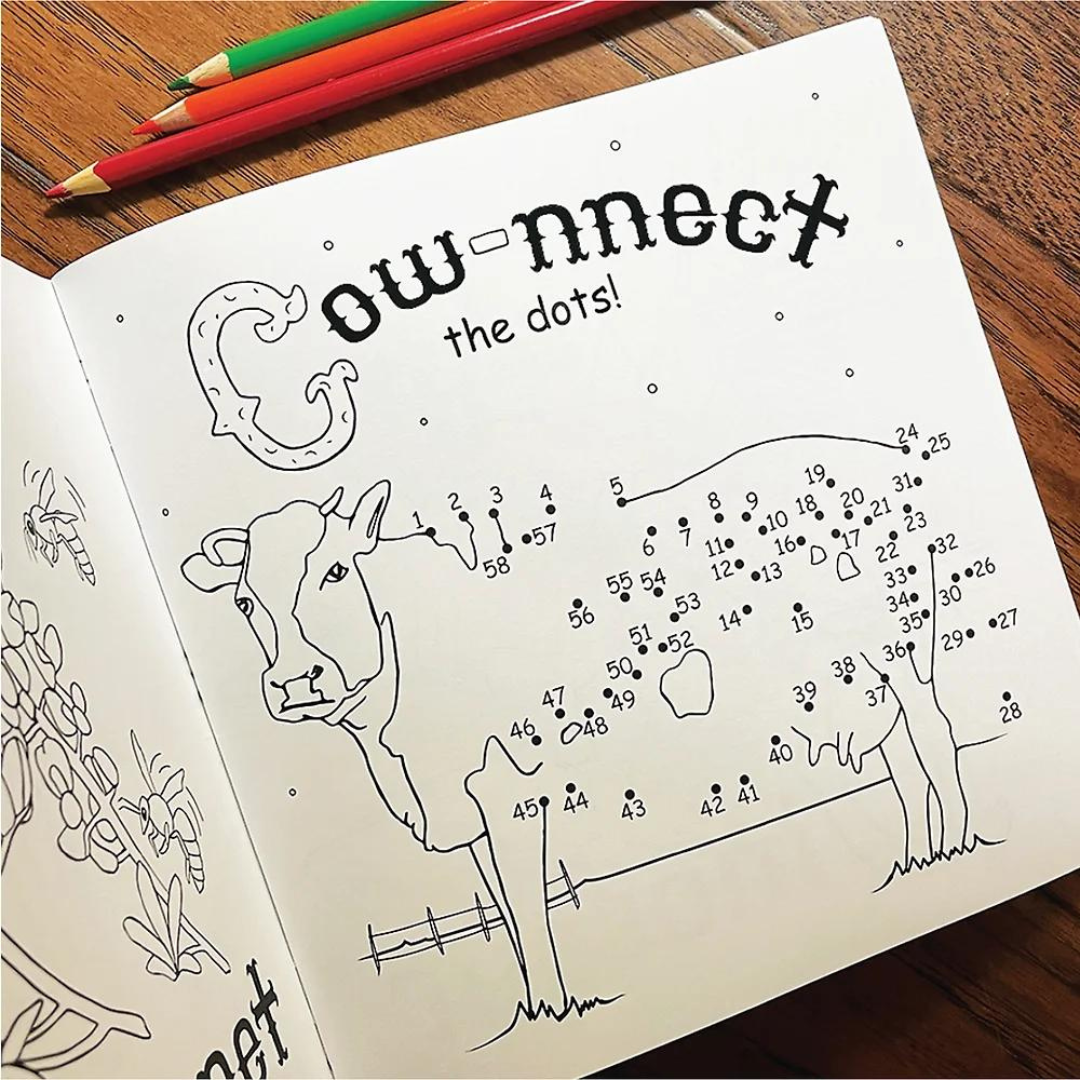 Cow-nnect
the dots!
24
25
19
31
5
4
3
2
1
8
9
18
20
21
23
10
57
6
7
11
16
17
22
32
58
12
13
33
26
55
54
34
30
56
53
14
15
35
27
51
52
36
29
50
38
37
47
49
39
28
46
48
40
45
44
43
42
41